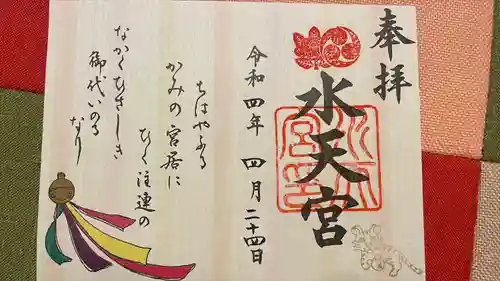 奉拝
水天宮
令和四年 四月二十四日
ちはやふる
かみの宮居に
ひく注連の
なかくひさしき
御代いのる
なり